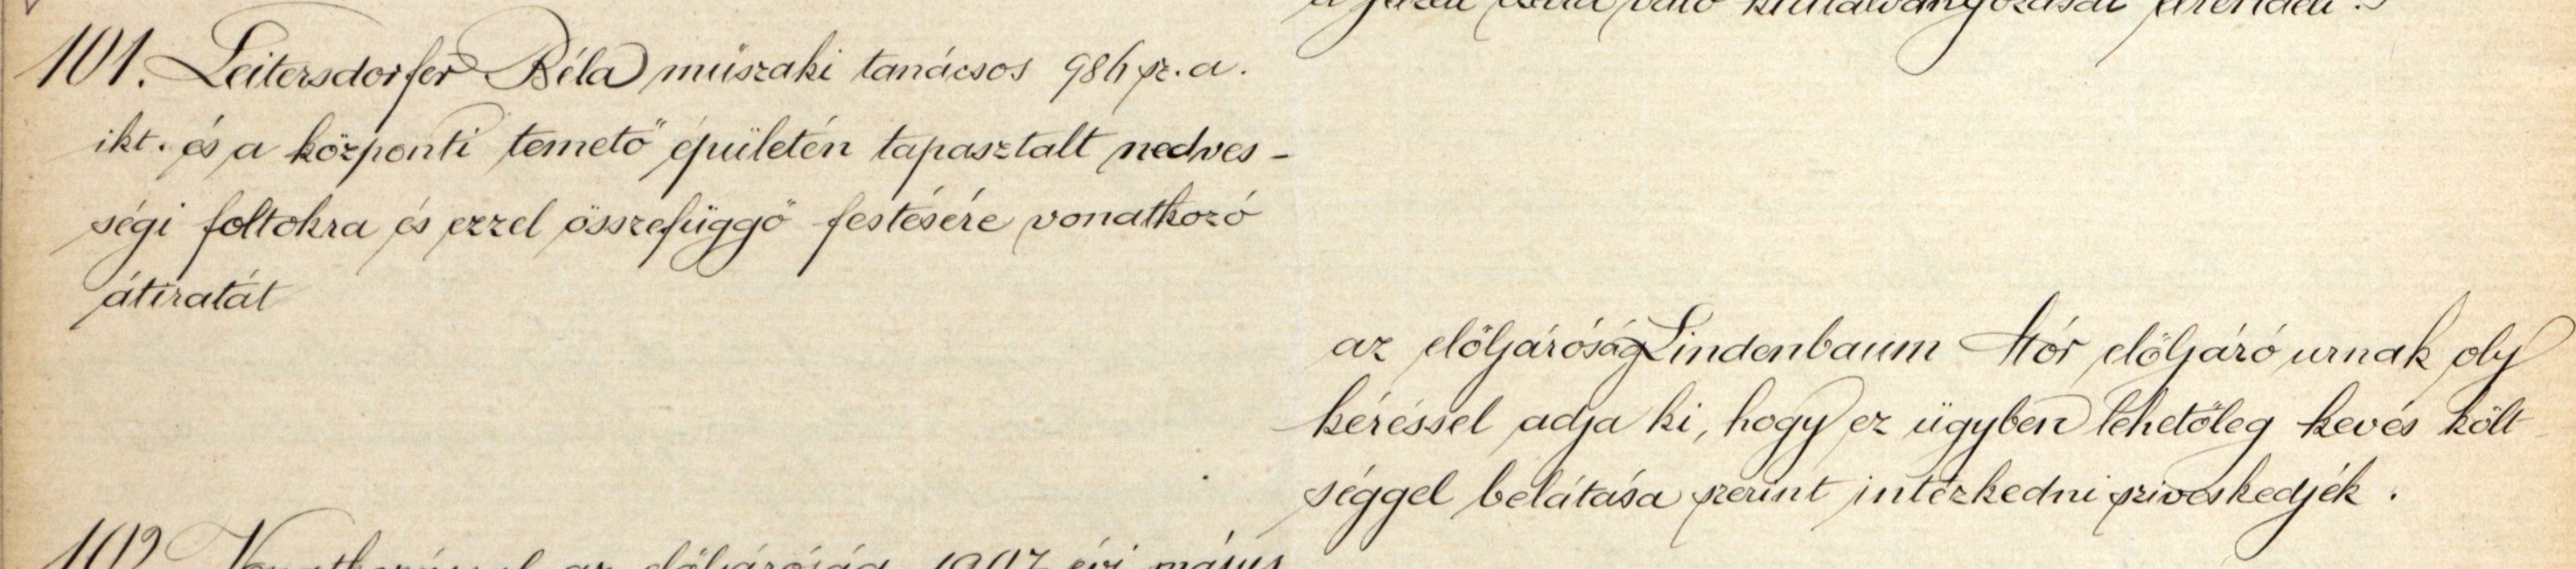 101. Leitersdorfer Béla műszaki tanácsos 986 sz. a.
ikt. és a központi temető épületén tapasztalt nedves-
ségi foltokra és ezzel összefüggő festésére vonatkozó
átiratát
az előljáróság Lindenbaum Mór előljáró urnak oly
kéréssel adja ki, hogy ez ügyben lehetőleg kevés költ
séggel belátása szerint intézkedni sziveskedjék.
102 Vonatkozással az előljáróság 1907 évi május